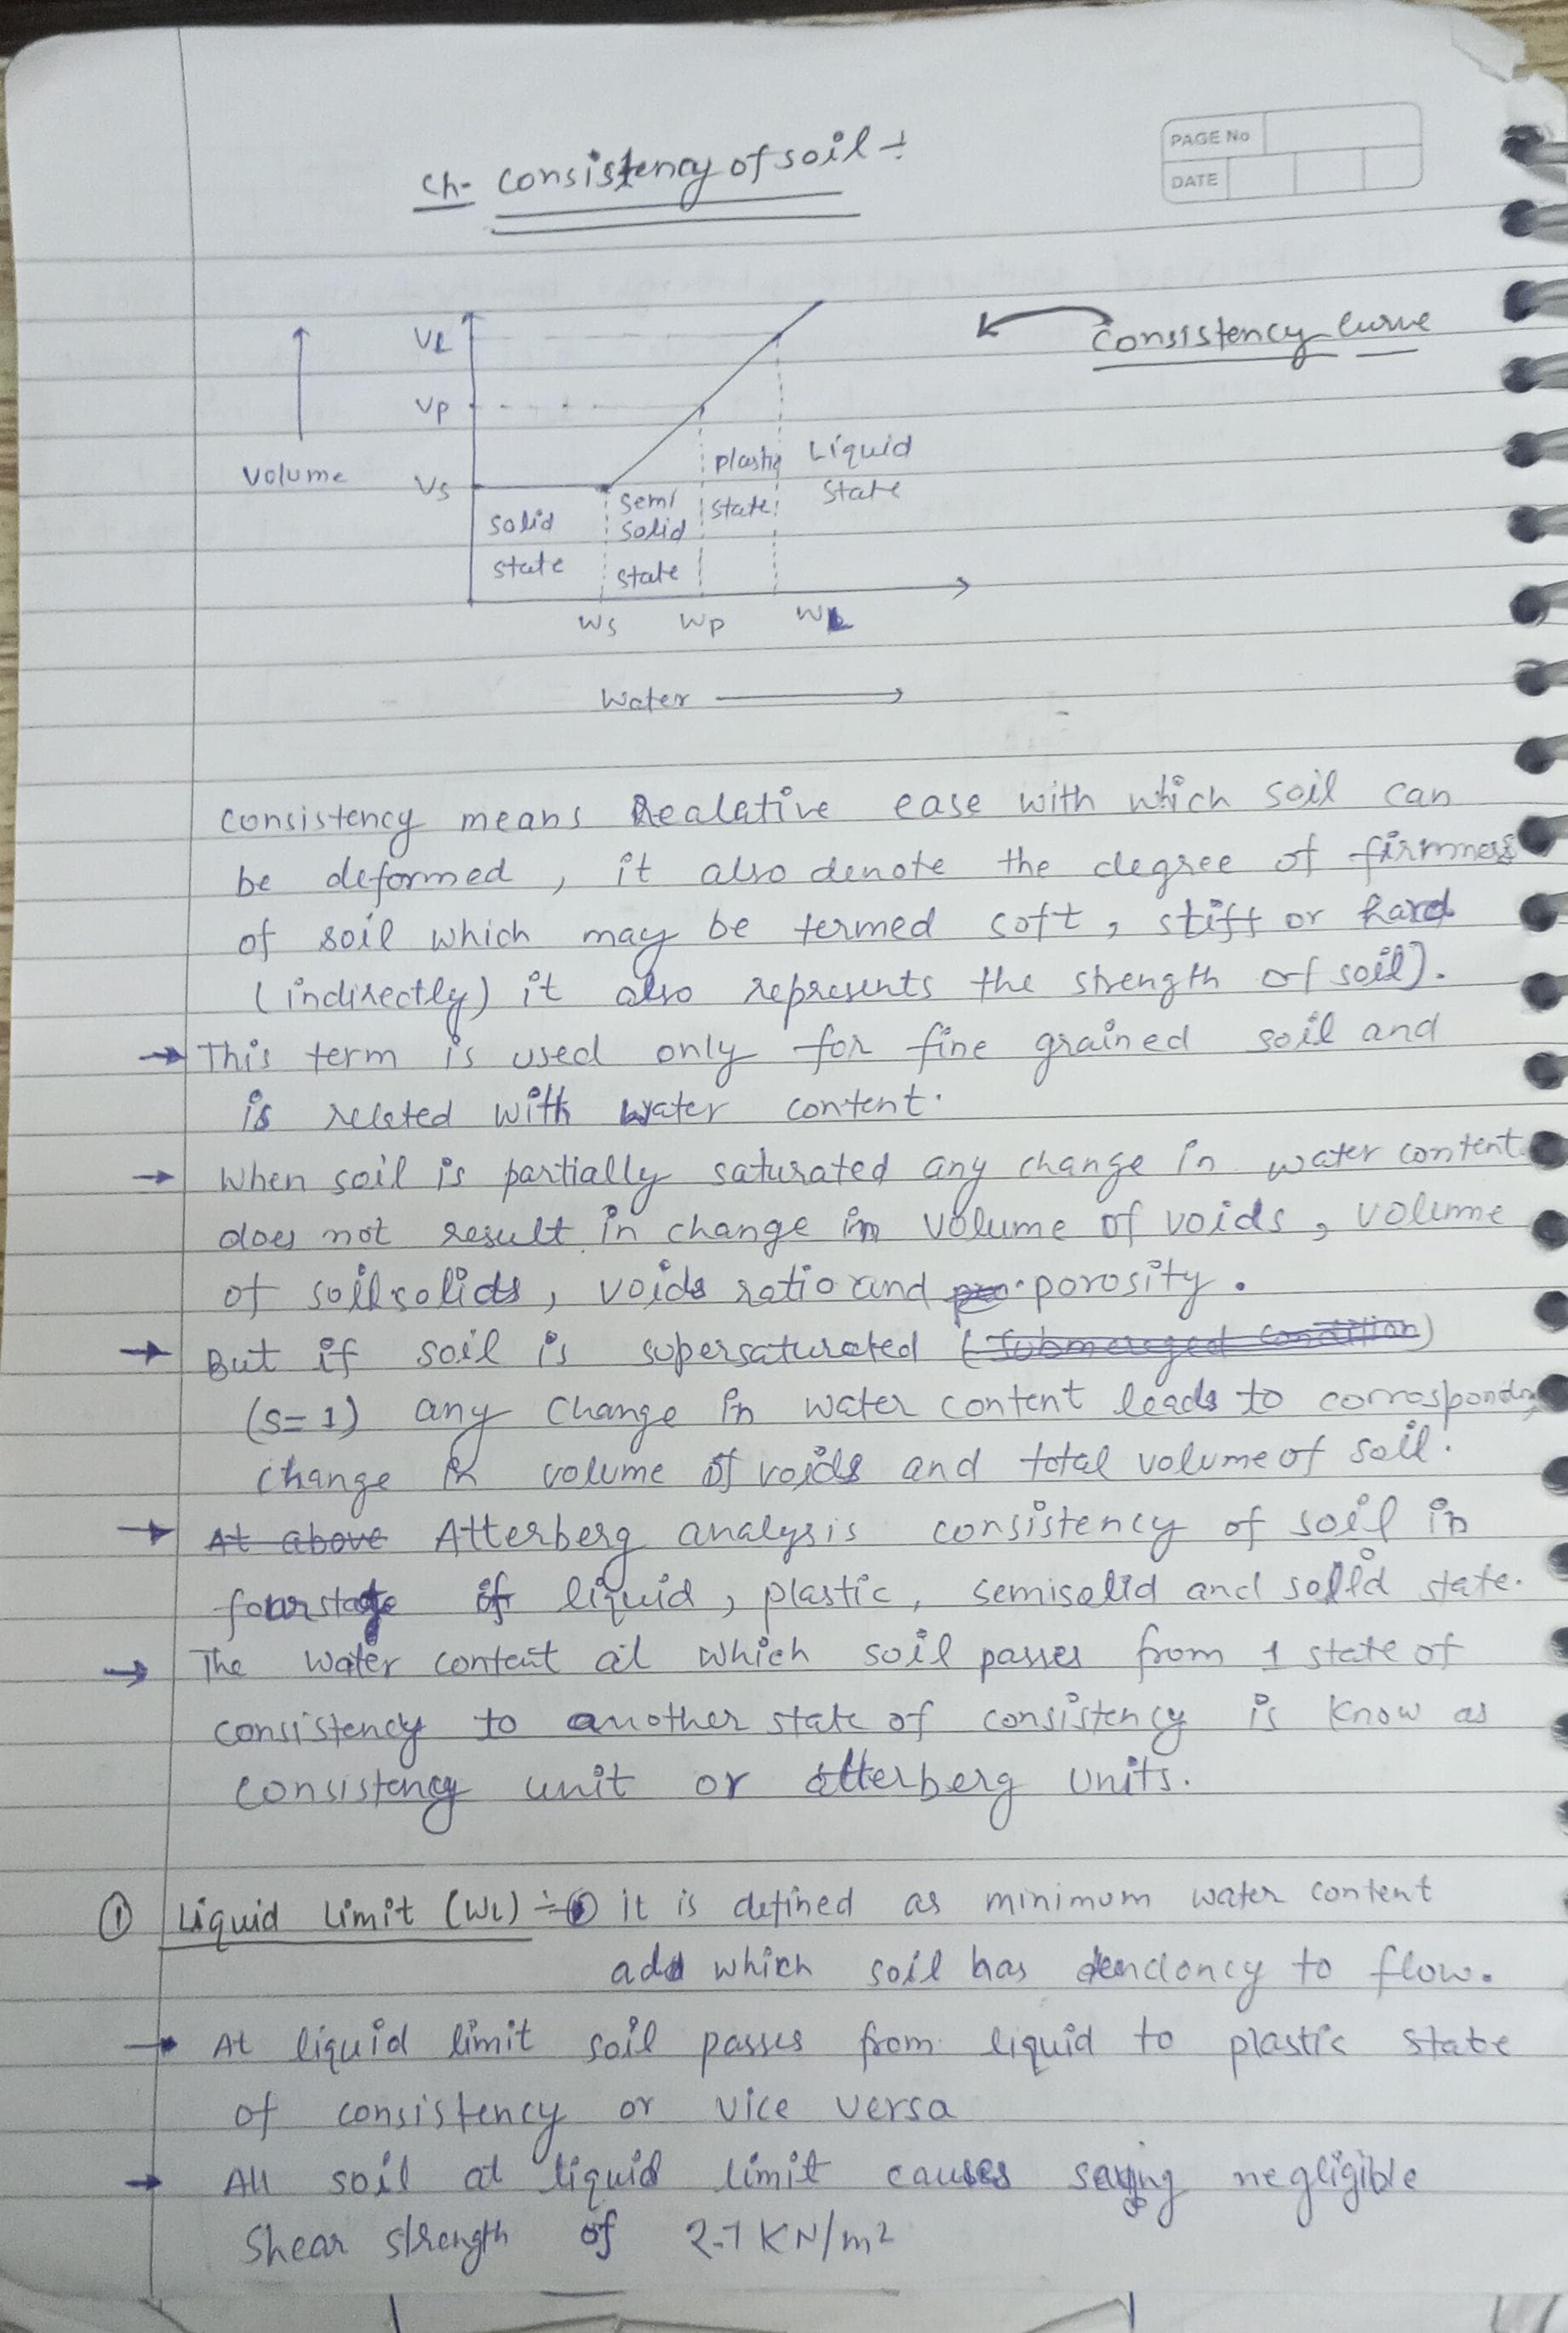 PAGE No
DATE
Ch- Consistency of soil :-
Consistency Curve
VL
VP
Volume
VS
solid
state
semi
solid
state
plastic
state
Liquid
state
WS WP WL
Water
consistency means Realative ease with which soil can
be deformed , it also denote the degree of firmness
of soil which may be termed soft , stiff or hard
(indirectly) it also represents the strength of soil).
→ This term is used only for fine grained soil and
is related with water content.
→ When soil is partially saturated any change in water content
does not result in change in volume of voids , volume
of soil solids , voids ratio and porosity .
→ But if soil is supersaturated (Submereged condition)
(S=1) any change in water content leads to corresponding
change in volume of voids and total volume of soil.
→ At above Atterberg analysis consistency of soil in
four stage of liquid , plastic , semisolid and solid state.
→ The water content at which soil passes from 1 state of
consistency to another state of consistency is know as
consistency unit or atterberg units.
① Liquid Limit (WL) :- it is defined as minimum water content
add which soil has dendoncy to flow.
→ At liquid limit soil passes from liquid to plastic state
of consistency or vice versa
→ All soil at liquid limit causes negligible
Shear strength of 2.7 KN/m2